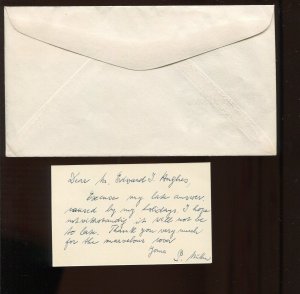 Dear Mr. Edward J. Hughes,
Excuse my late answer
caused by my holidays. I hope
notwithstanding it will not be
to late. Thank you very much
for the marvelous cover
Yours